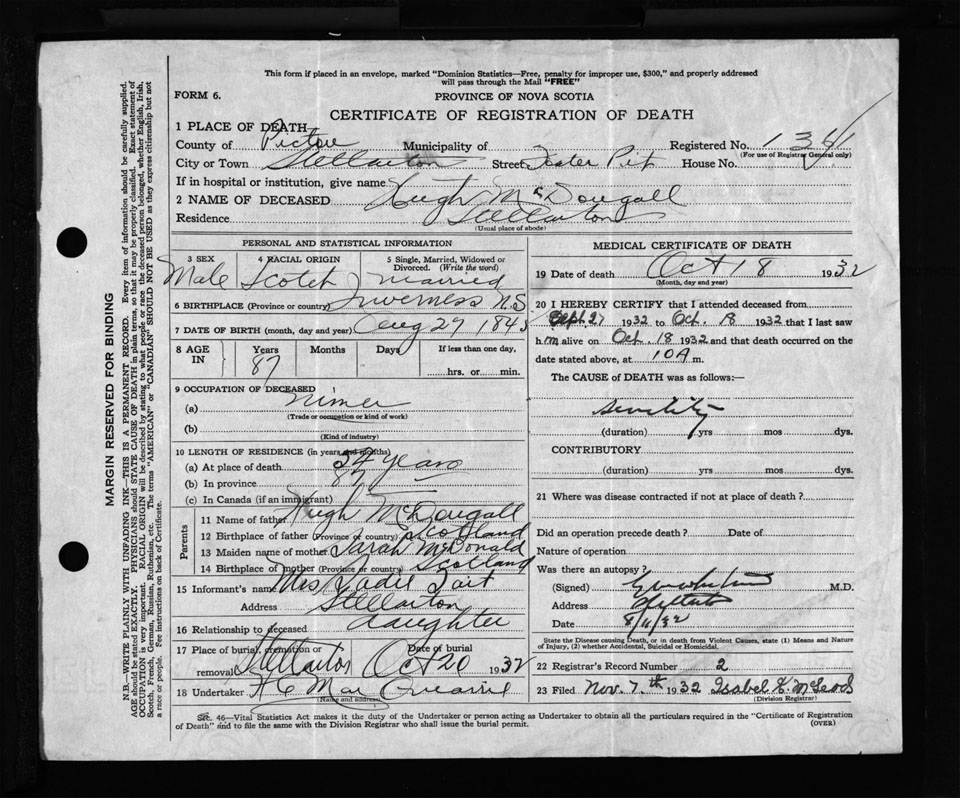 This form if placed in an envelope, marked "Dominion Statistics—Free, penalty for improper use, $300," and properly addressed
will pass through the Mail "FREE"
FORM 6.
PROVINCE OF NOVA SCOTIA
CERTIFICATE OF REGISTRATION OF DEATH
1 PLACE OF DEATH
County of Pictou Municipality of Registered No. 1341
(For use of Registrar General only)
City or Town Stellarton Street Foster Pit House No.
If in hospital or institution, give name
2 NAME OF DECEASED Hugh McDougall
Residence Stellarton
(Usual place of abode)
PERSONAL AND STATISTICAL INFORMATION
3 SEX 4 RACIAL ORIGIN 5 Single, Married, Widowed or Divorced. (Write the word)
Male Scotch Married
6 BIRTHPLACE (Province or country) Inverness N.S
7 DATE OF BIRTH (month, day and year) Aug 27 1845
8 AGE IN Years Months Days If less than one day,
87 hrs. or min.
9 OCCUPATION OF DECEASED
(a) Miner
(Trade or occupation or kind of work)
(b)
(Kind of industry)
10 LENGTH OF RESIDENCE (in years and months)
(a) At place of death 34 years
(b) In province 87
(c) In Canada (if an immigrant)
Parents
11 Name of father Hugh McDougall
12 Birthplace of father (Province or country) Scotland
13 Maiden name of mother Sarah McDonald
14 Birthplace of mother (Province or country) Scotland
15 Informant's name Mrs Sadie Tait
Address Stellarton
16 Relationship to deceased daughter
17 Place of burial, cremation or removal Stellarton Date of burial Oct 20 1932
18 Undertaker H C Mac
(Name and address)
MEDICAL CERTIFICATE OF DEATH
19 Date of death Oct 18 1932
(Month, day and year)
20 I HEREBY CERTIFY that I attended deceased from
Sept. 27 1932 to Oct. 18 1932 that I last saw
him alive on Oct. 18 1932 and that death occurred on the
date stated above, at 10 A m.
The CAUSE of DEATH was as follows:
Senility
(duration) yrs mos dys.
CONTRIBUTORY
(duration) yrs mos dys.
21 Where was disease contracted if not at place of death?
Did an operation precede death? Date of
Nature of operation
Was there an autopsy?
(Signed) M.D.
Address Stellarton
Date 8/11/32
State the Disease causing Death, or in death from Violent Causes, state (1) Means and Nature
of Injury, (2) whether Accidental, Suicidal or Homicidal.
22 Registrar's Record Number 2
23 Filed Nov. 7th 1932 Isabel K. McLeod
(Division Registrar)
Sec. 46—Vital Statistics Act makes it the duty of the Undertaker or person acting as Undertaker to obtain all the particulars required in the "Certificate of Registration
of Death" and to file the same with the Division Registrar who shall issue the burial permit.
(OVER)
MARGIN RESERVED FOR BINDING
N.B.—WRITE PLAINLY WITH UNFADING INK—THIS IS A PERMANENT RECORD. Every item of information should be carefully supplied.
AGE should be stated EXACTLY. PHYSICIANS should STATE CAUSE OF DEATH in plain terms, so that it may be properly classified. Exact statement of
OCCUPATION is very important. RACIAL ORIGIN will be described by stating to what people or race the deceased person belonged, whether English, Irish,
Scotch, French, German, Russian, Ruthenian, etc. The terms "AMERICAN" or "CANADIAN" SHOULD NOT BE USED as they express citizenship but not
a race or people. Fee instructions on back of Certificate.